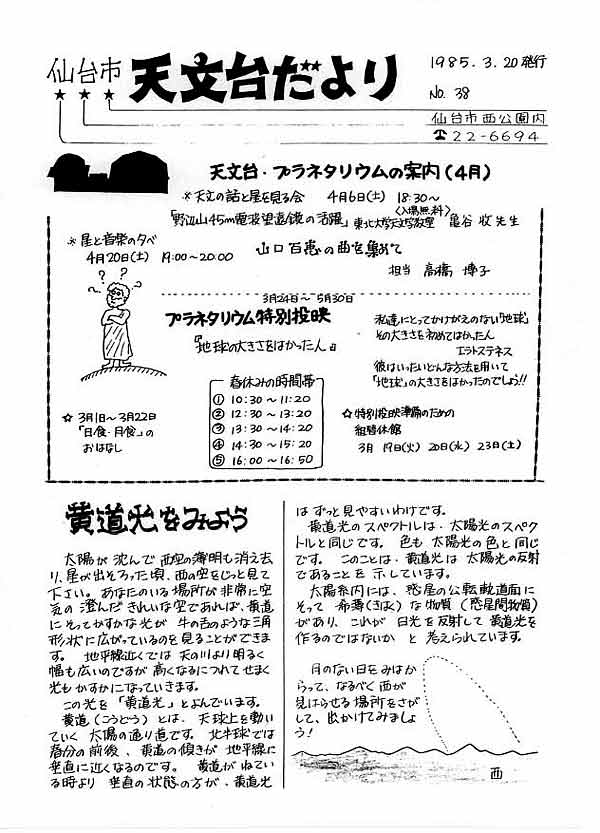 仙台市 天文台だより
1985.3.20発行
No. 38
仙台市西公園内
☎22-6694
天文台・プラネタリウムの案内(4月)
※天文の話と星を見る会 4月6日(土) 18:30～
〈入場無料〉
「野辺山45m電波望遠鏡の活躍」東北大学天文学教室 亀谷 收 先生
※星と音楽の夕べ
4月20日(土) 19:00～20:00 山口百恵の曲を集めて
担当 高橋 博子
3月24日～5月30日
プラネタリウム特別投映
『地球の大きさをはかった人』
私達にとってかけがえのない「地球」
その大きさを初めてはかった人
エラトステネス
彼はいったいどんな方法を用いて
「地球」の大きさをはかったのでしょう!!
春休みの時間帯
① 10:30～11:20
② 12:30～13:20
③ 13:30～14:20
④ 14:30～15:20
⑤ 16:00～16:50
☆ 3月1日～3月22日
「日食・月食」の
おはなし
☆特別投映準備のための
臨時休館
3月 19日(火) 20日(水) 23日(土)
黄道光をみよう
太陽が沈んで西空の薄明も消え去
り、星が出そろった頃、西の空をじっと見て
下さい。あなたのいる場所が非常に空
気の澄んだきれいな空であれば、黄道
にそってかすかな光が牛の舌のような三角
形状に広がっているのを見ることができま
す。地平線近くでは天の川より明るく
幅も広いのですが高くなるにつれてせまく
光もかすかになっていきます。
この光を「黄道光」とよんでいます。
黄道(こうどう)とは、天球上を動い
ていく太陽の通り道です。北半球では
春分の前後、黄道の傾きが地平線に
垂直に近くなるのです。黄道がねてい
る時より垂直の状態の方が、黄道光
はずっと見やすいわけです。
黄道光のスペクトルは、太陽光のスペク
トルと同じです。色も太陽光の色と同じ
です。このことは、黄道光は太陽の反射
であることを示しています。
太陽系内には、惑星の公転軌道面に
そって希薄(きはく)な物質(惑星間物質)
があり、これが日光を反射して黄道光を
作るのではないかと考えられています。
月のない日をみはか
らって、なるべく西が
見はらせる場所をさが
して、出かけてみましょ
う!
西